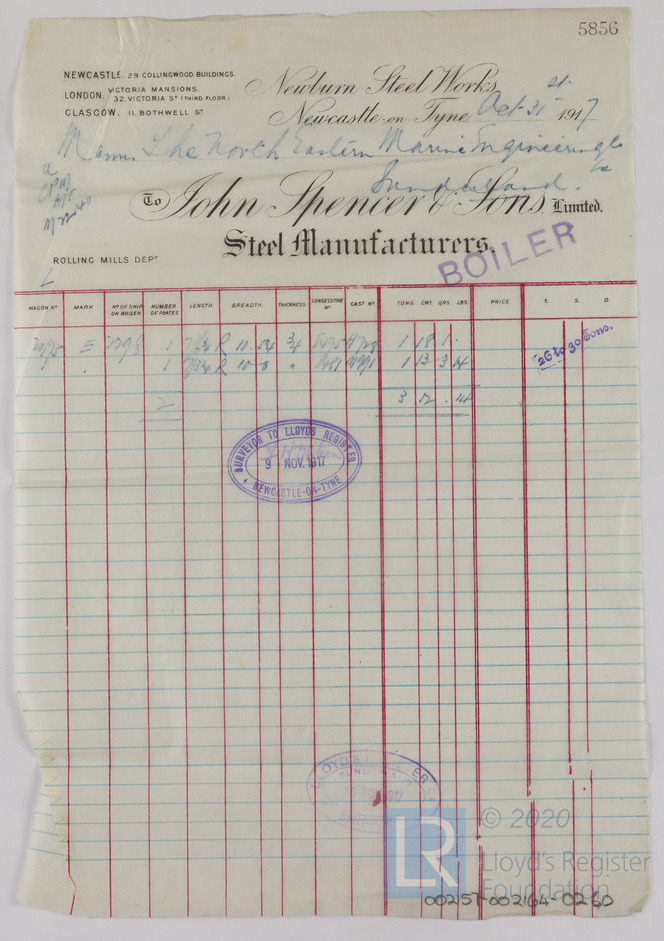 5856
NEWCASTLE, 29 COLLINGWOOD BUILDINGS.
LONDON, VICTORIA MANSIONS, 32, VICTORIA ST (THIRD FLOOR)
GLASGOW, 11, BOTHWELL ST
Newburn Steel Works,
Newcastle-on-Tyne, Oct 31st 1917
The North Eastern Marine Engineering Co
Sunderland.
To John Spencer & Sons, Limited.
Steel Manufacturers.
ROLLING MILLS DEPT
BOILER
WAGON No MARK No OF SHIP OR BOILER NUMBER OF PLATES LENGTH. BREADTH. THICKNESS. CONSECUTIVE No CAST No TONS. CWT. QRS. LBS. PRICE £. S. D.
E 2298 1 3/4 1 18 1 .
26 to 30 Tons.
. 1 " 1 13 3 14
2 3 12 . 14
SURVEYOR TO LLOYDS REGISTER
9 NOV. 1917
NEWCASTLE-ON-TYNE
LLOYD'S REGISTER
SUNDERLAND
NOV 1917
LR
© 2020
Lloyd's Register
Foundation
00257-002164-0260